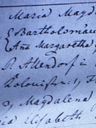 Maria Magd
& Bartholomaeu
Ana Margaretha,
Attendorf in
3, Magdalena
Elisabeth